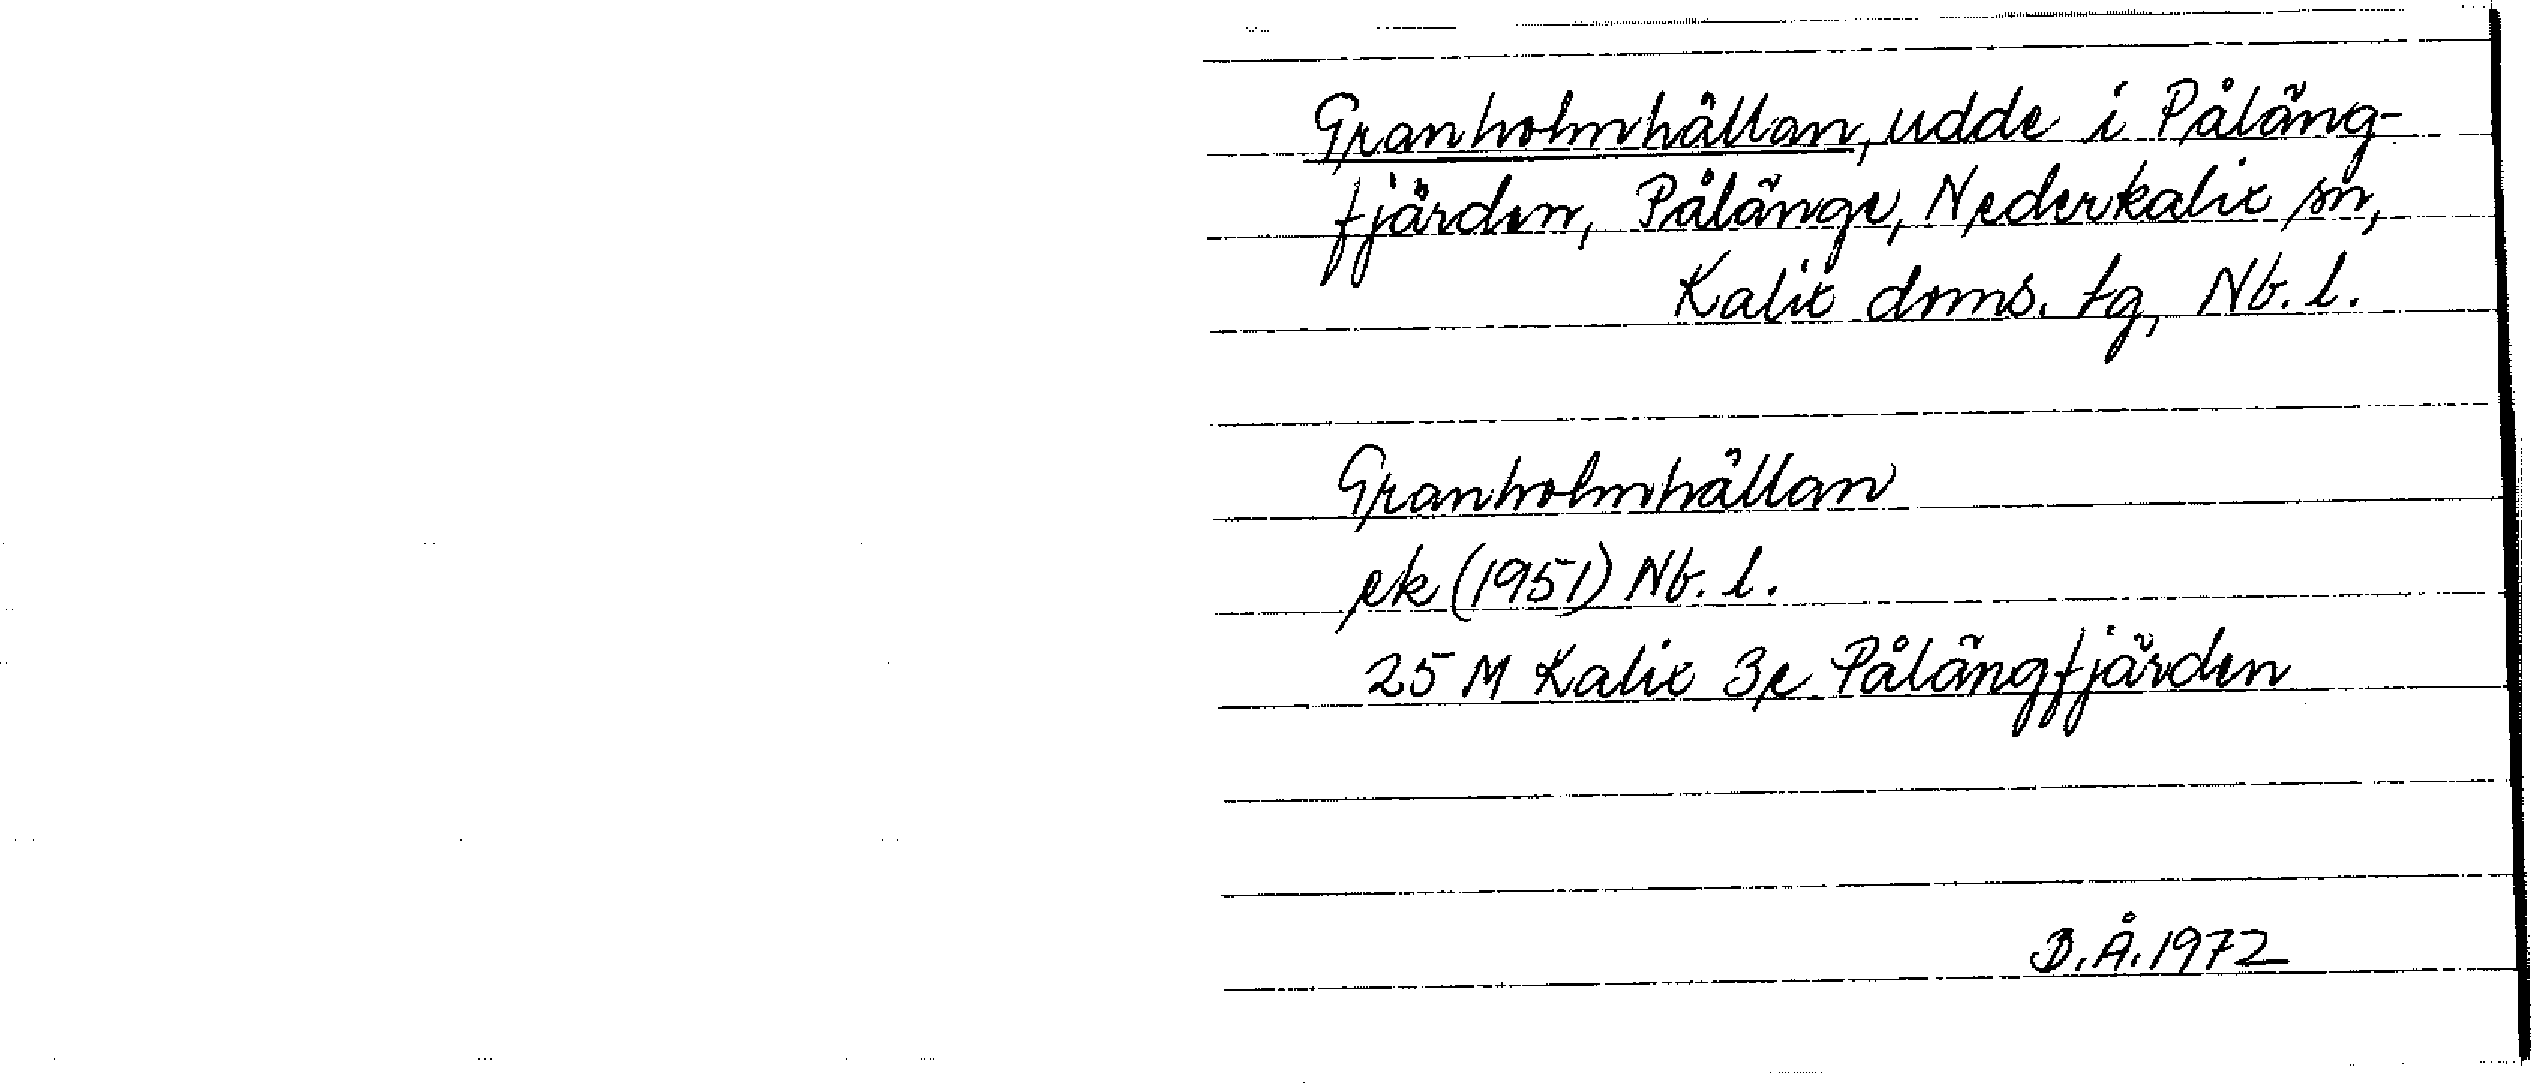 Granholmhällan, udde i Påläng-
fjärden, Pålänge, Nederkalix sn,
Kalix doms. tg, Nb. l.
Granholmhällan
ek (1951) Nb. l.
25 M Kalix 3e Pålängfjärden
B.Å. 1972